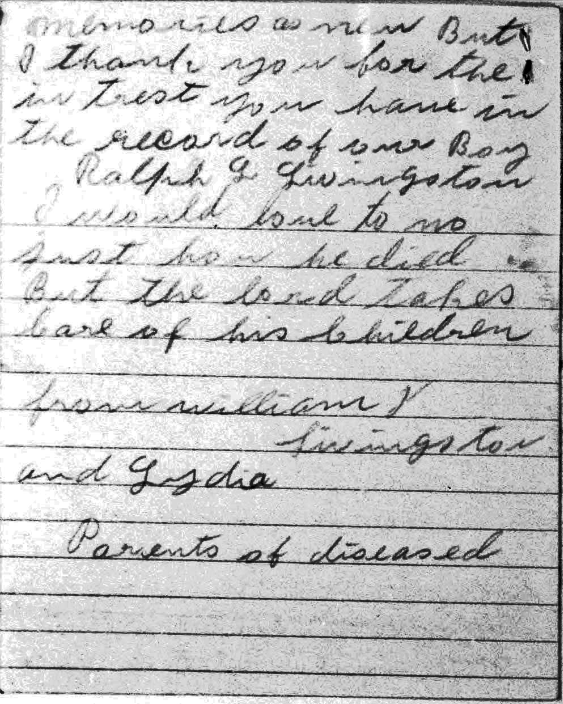 memories as new But
I thank you for the
in trest you have in
the record of our Boy
Ralph L Livingston
I would love to no
Just how he died
But the lord takes
Care of his Children
from william J
Livingston
and Lydia
Parents of diseased